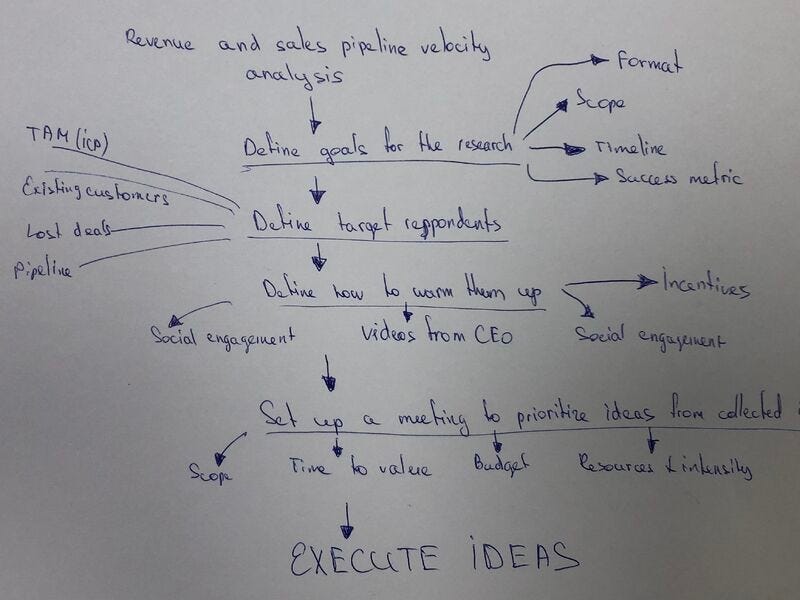 Revenue and sales pipeline velocity
analysis
Format
Scope
Define goals for the research
Timeline
Success metric
TAM (ICP)
Existing customers
Lost deals
Pipeline
Define target reppondents
Define how to warm them up
Incentives
Social engagement
Videos from CEO
Social engagement
Set up a meeting to prioritize ideas from collected
Scope
Time to value
Budget
Resources & intensity
EXECUTE IDEAS